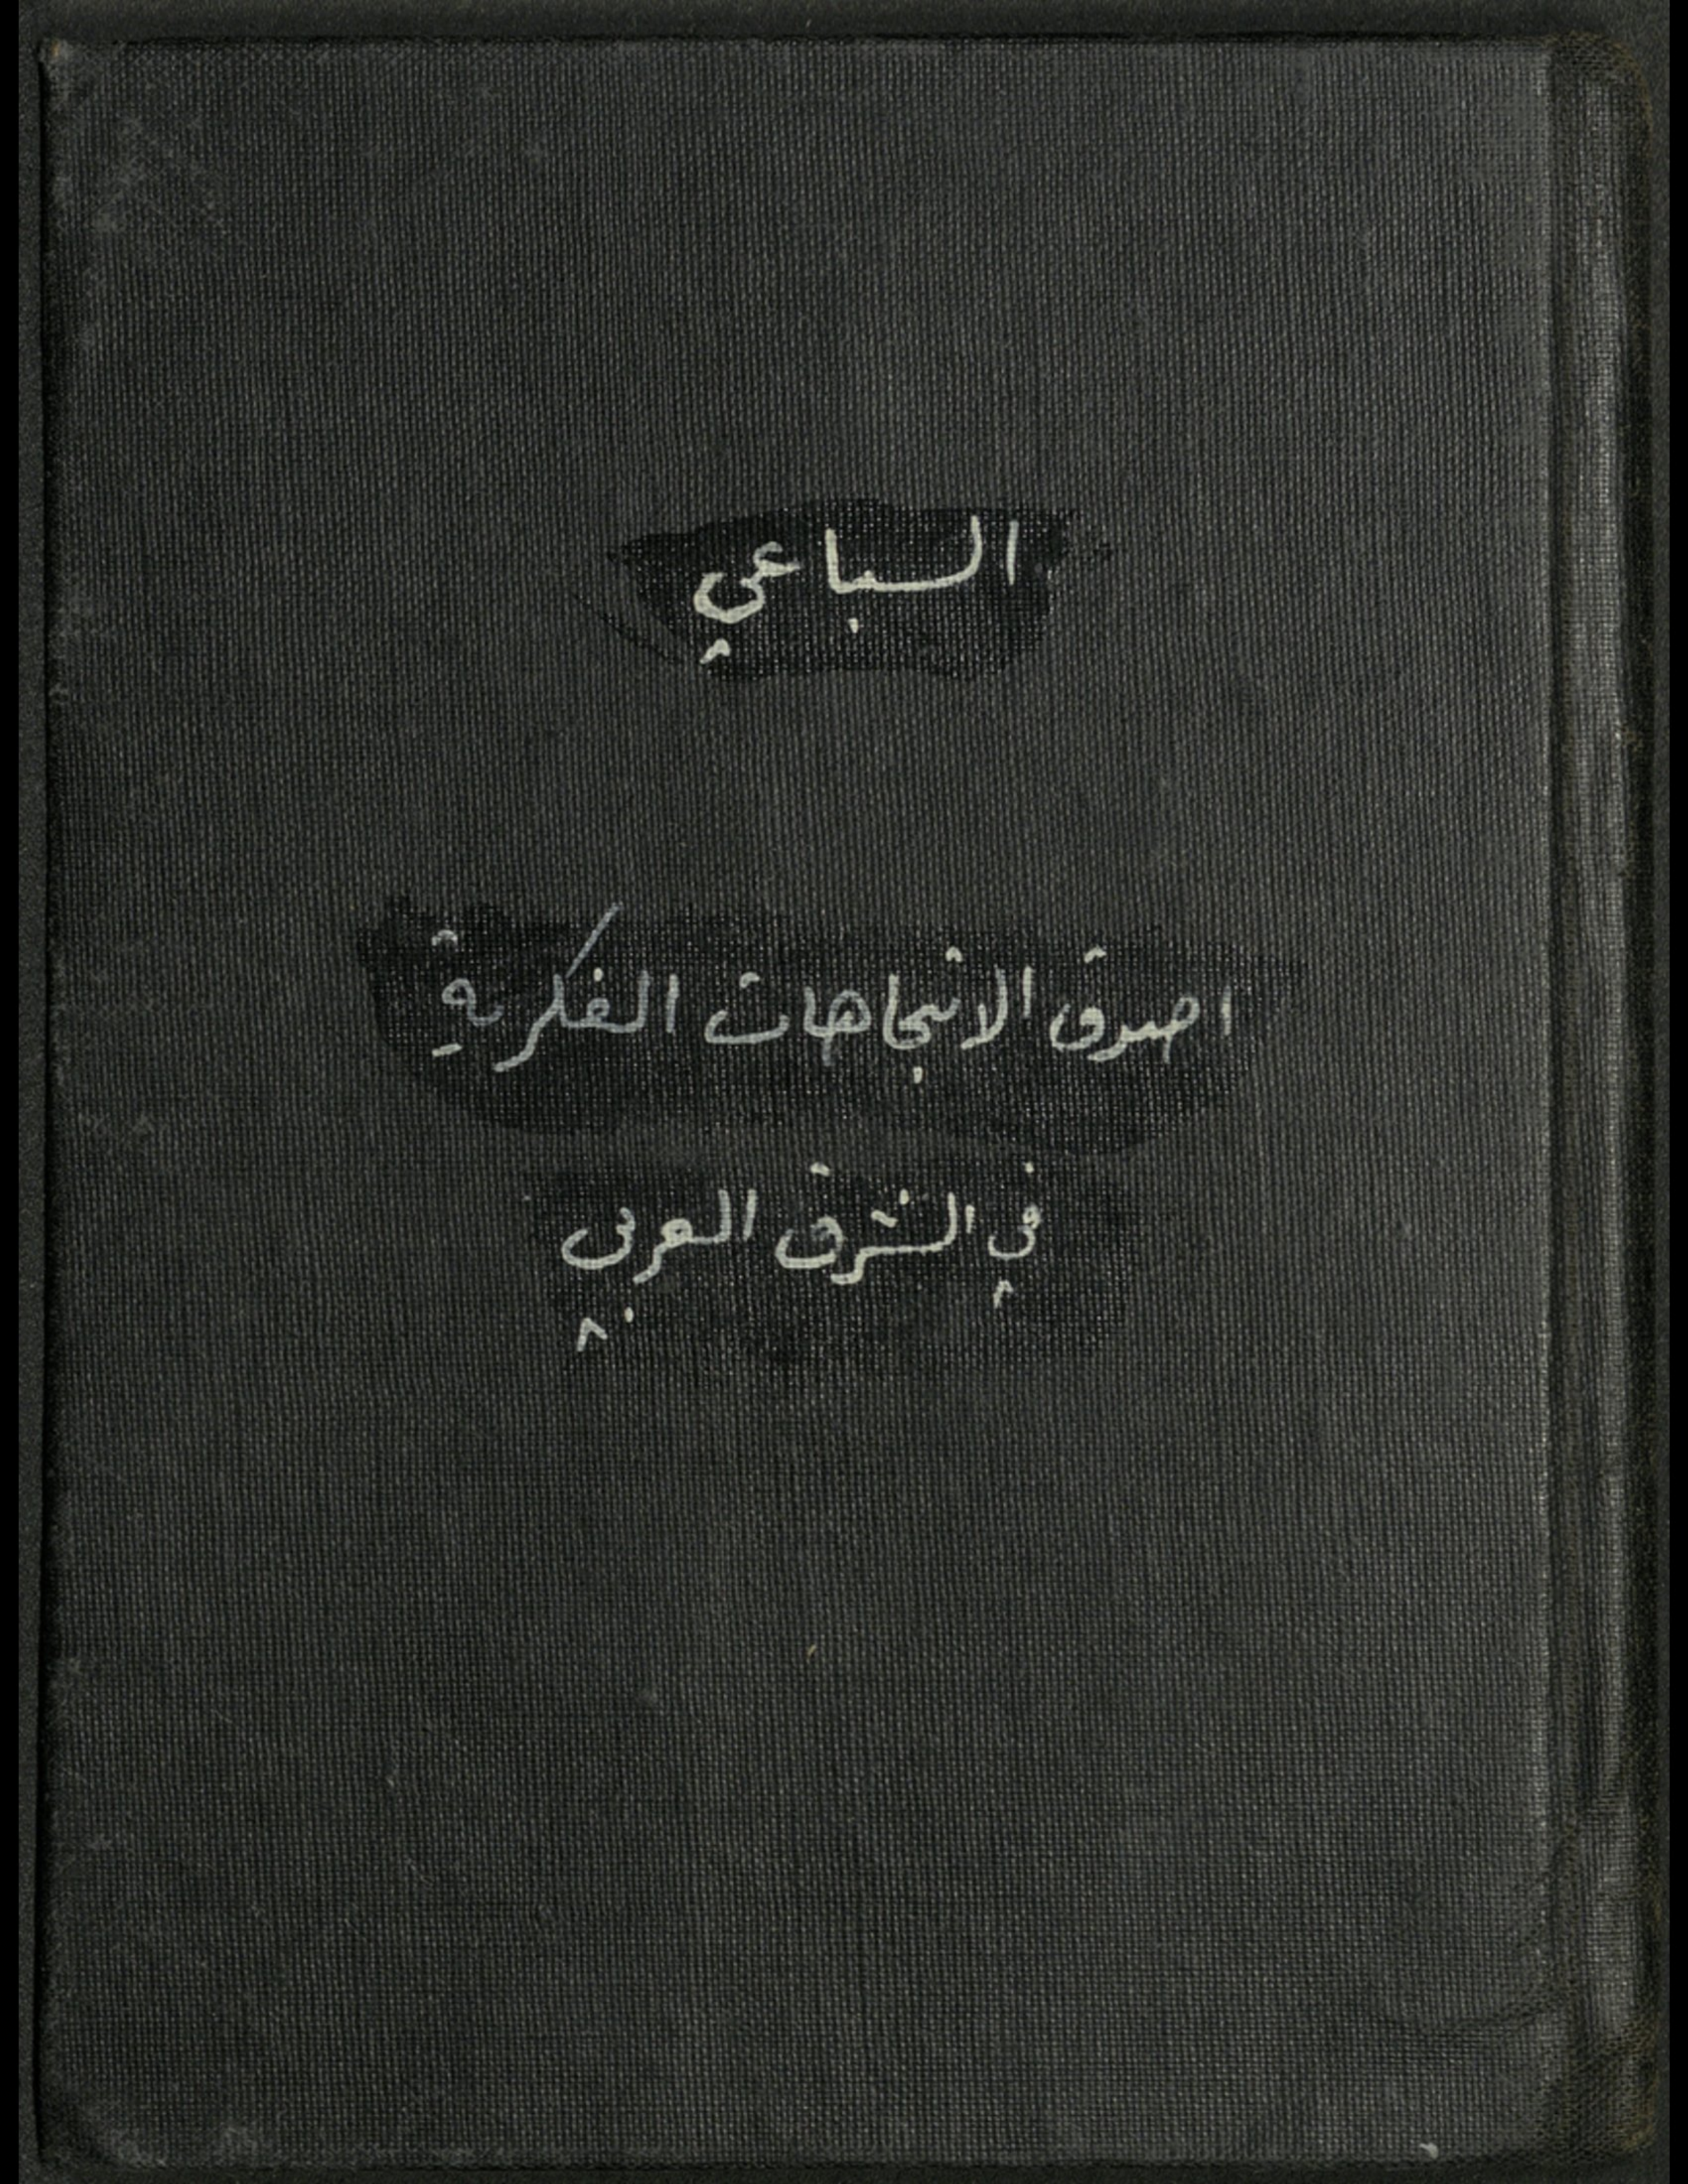 السباعي
اصدق الاتجاهات الفكرية
في الشرق العربي